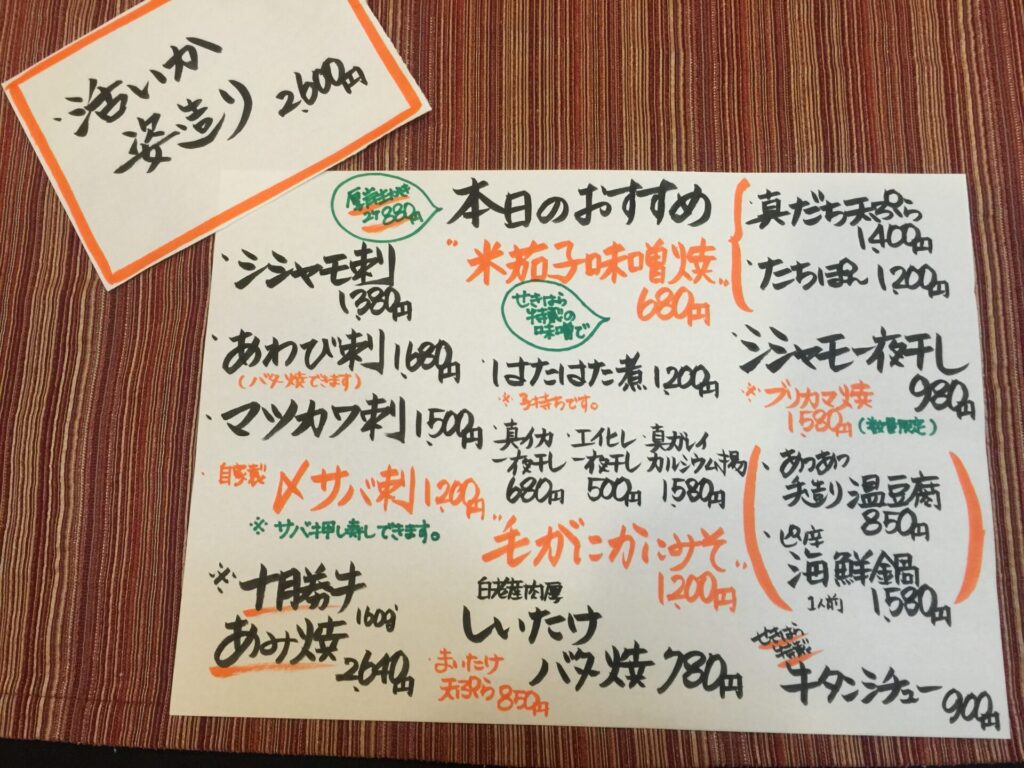 活いか
姿造り 2,600円
本日のおすすめ
厚岸生かき
2ケ 880円
・シシャモ刺
1380円
・あわび刺 1,680円
(バター焼できます)
・マツカワ刺 1,500円
自家製 〆サバ刺 1,200円
※ サバ押し寿しできます。
※ 十勝牛
あみ焼 160g
2,640円
"米茄子味噌焼"
680円
せきはら
特製の
味噌で
・はたはた煮 1,200円
※ 子持ちです。
・真イカ
一夜干し
680円
・エイヒレ
一夜干し
500円
・真ガレイ
カルシウム揚
1,580円
"毛がにかにみそ"
1,200円
白老産肉厚
しいたけ
バタ焼 780円
まいたけ
天ぷら 850円
・真だち天ぷら
1,400円
・たちぽん 1,200円
・シシャモ一夜干し
980円
※ ブリカマ焼
1,580円 (数量限定)
・あつあつ
手造り温豆腐
850円
・海鮮鍋
1人前 1,580円
牛タンシチュー
900円